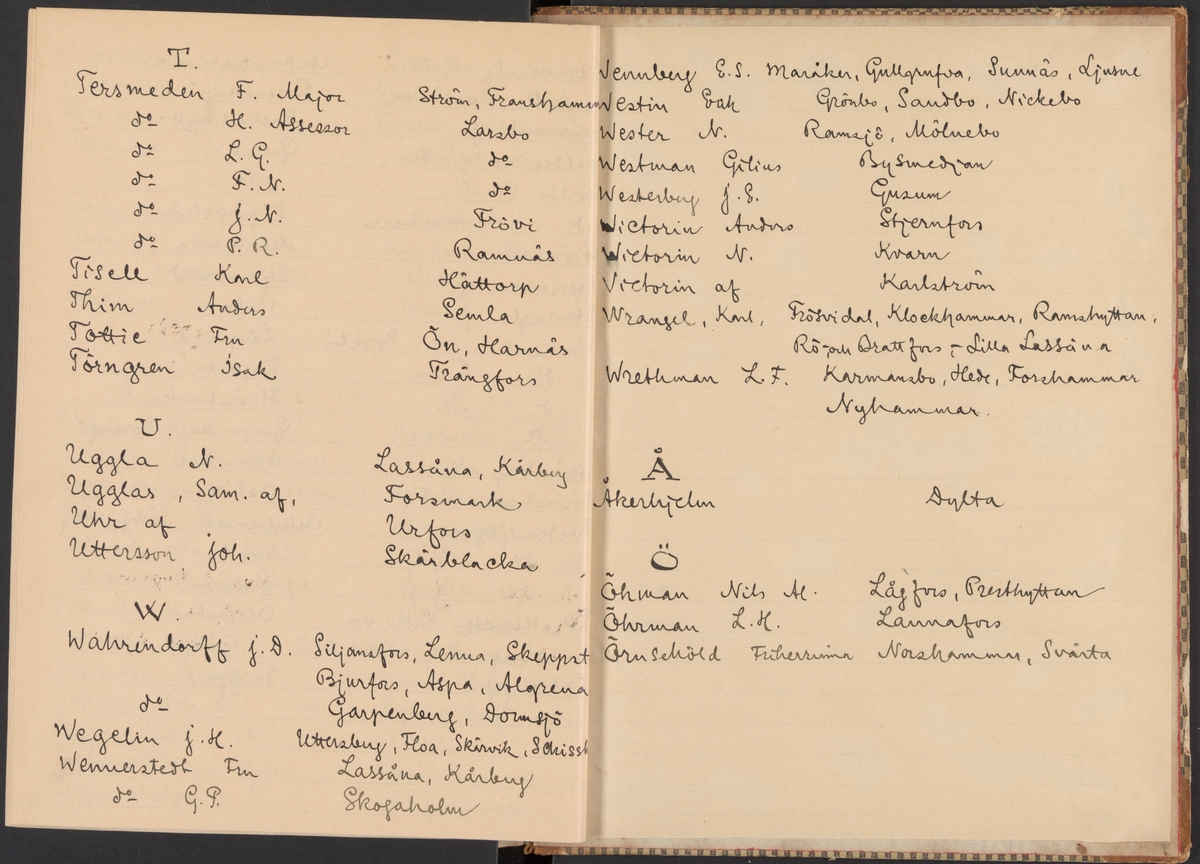 T.
Tersmeden F. Major Ström, Franshamm
do H. Assessor Larsbo
do L. G. do
do F. N. do
do J. N. Frövi
do P. R. Ramnäs
Tisell Karl Hättorp
Thim Anders Semla
Tottie Fru Ön, Harnäs
Törngren Isak Trångfors
U.
Uggla N. Lassåna, Kårberg
Ugglas, Sam. af, Forsmark
Uhr af Urfors
Uttersson Joh. Skärblacka
W.
Wahrendorff J. D. Siljansfors, Lenna, Skeppst
Bjurfors, Aspa, Algrena
do Garpenberg, Domsjö
Wegelin J. H. Uttersberg, Floa, Skärvik, Schissh
Wennerstedt Fru Lassåna, Kårberg
do G. P. Skogaholm
Wennberg E. S. Maråker, Gullgrufva, Sunnäs, Ljusne
Westin Erik Grönbo, Sandbo, Nickebo
Wester N. Ramsjö, Mölnebo
Westman Gilius Bysmedjan
Westerberg J. E. Gusum
Victorin Anders Stjernfors
Victorin N. Kvarn
Victorin af Karlström
Wrangel, Karl, Frösvidal, Klockhammar, Ramshyttan,
Rö- och Brattfors, Lilla Lassåna
Wrethman L. F. Karmansbo, Hede, Forshammar
Nyhammar.
Å
Åkerhjelm Dylta
Ö
Öhman Nils M. Lågfors, Presthyttan
Öhrman L. H. Lannafors
Örnsköld Friherrinna Norshammar, Svärta